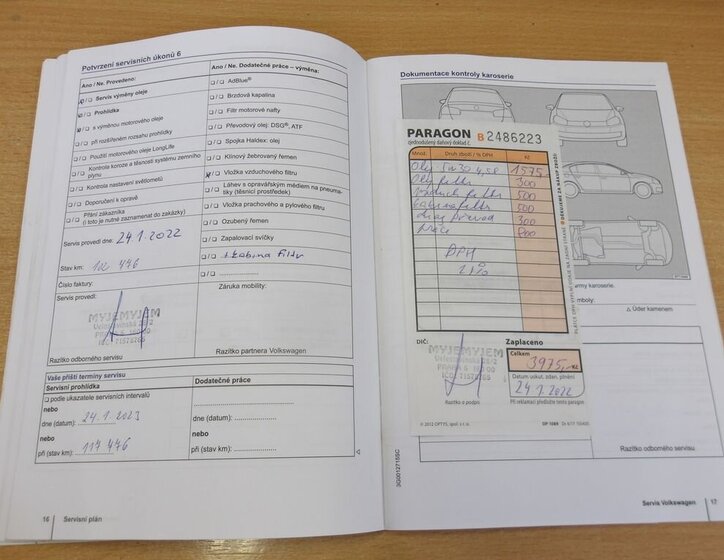 Potvrzení servisních úkonů 6
Ano / Ne. Provedeno:
Servis výměny oleje
Prohlídka
s výměnou motorového oleje
při rozšířeném rozsahu prohlídky
Použití motorového oleje LongLife
Kontrola koroze a těsnosti systému zemního
plynu
Kontrola nastavení světlometů
Doporučení k opravě
Přání zákazníka
(i toto je nutné zaznamenat do zakázky)
Servis proveď dne: 24.1.2022
Stav km: 102 446
Číslo faktury:
Servis provedl:
MYJEMYJEM
Razítko odborného servisu
Ano / Ne. Dodatečné práce – výměna:
AdBlue®
Brzdová kapalina
Filtr motorové nafty
Převodový olej: DSG®, ATF
Spojka Haldex: olej
Klínový žebrovaný řemen
Vložka vzduchového filtru
Láhev s opravářským médiem na pneuma-
tiky (těsnicí prostředek)
Vložka prachového a pylového filtru
Ozubený řemen
Zapalovací svíčky
+ kabina filtr
Záruka mobility:
Razítko partnera Volkswagen
Vaše příští termíny servisu
Servisní prohlídka
podle ukazatele servisních intervalů
nebo
dne (datum): 24.1.2023
nebo
při (stav km): 117 446
Dodatečné práce
dne (datum):
nebo
při (stav km):
16 Servisní plán
Dokumentace kontroly karoserie
PARAGON B 2486223
zjednodušený daňový doklad č.
Množ. Druh zboží / % DPH Kč
Olej 5w30 4,5l 1575
Olej filtr 300
500
500
300
práce 800
DPH
21%
DĚKUJEME ZA NÁKUP ZBOŽÍ
DIČ:
MYJEMYJEM
Veleslavínská 25/2
PRAHA 6
Razítko a podpis
Zaplaceno
Celkem
3975,- Kč
Datum uskut. zdan. plnění
24.1.2022
Při reklamaci předložte tento paragon
© 2012 OPTYS, spol. s r. o. OP 1089
rmy karoserie.
mboly:
△ Úder kamenem
Razítko odborného servisu
3G0012715SC
Servis Volkswagen 17